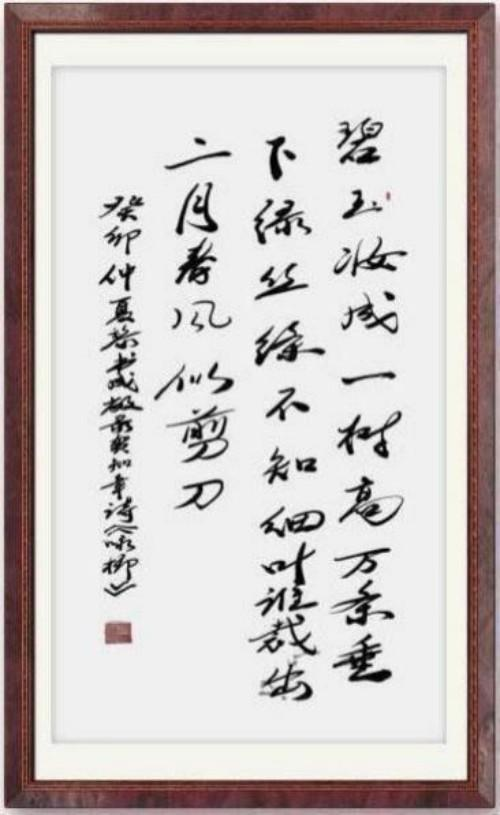 碧玉妆成一树高万条垂
下绿丝绦不知细叶谁裁出
二月春风似剪刀
癸卯仲夏 贺知章诗《咏柳》